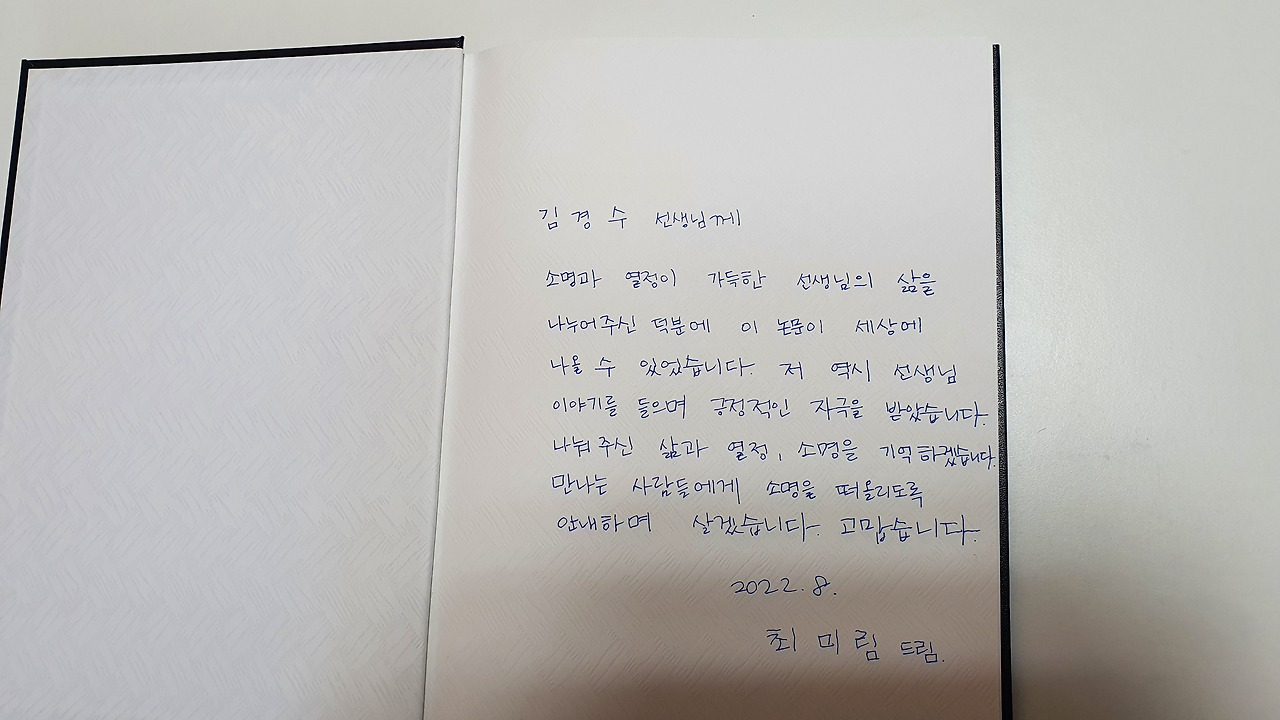 김경수 선생님께
소명과 열정이 가득한 선생님의 삶을
나누어주신 덕분에 이 논문이 세상에
나올 수 있었습니다. 저 역시 선생님
이야기를 들으며 긍정적인 자극을 받았습니다.
나눠주신 삶과 열정, 소명을 기억하겠습니다.
만나는 사람들에게 소명을 떠올리도록
안내하며 살겠습니다. 고맙습니다.
2022.8.
최미림 드림.